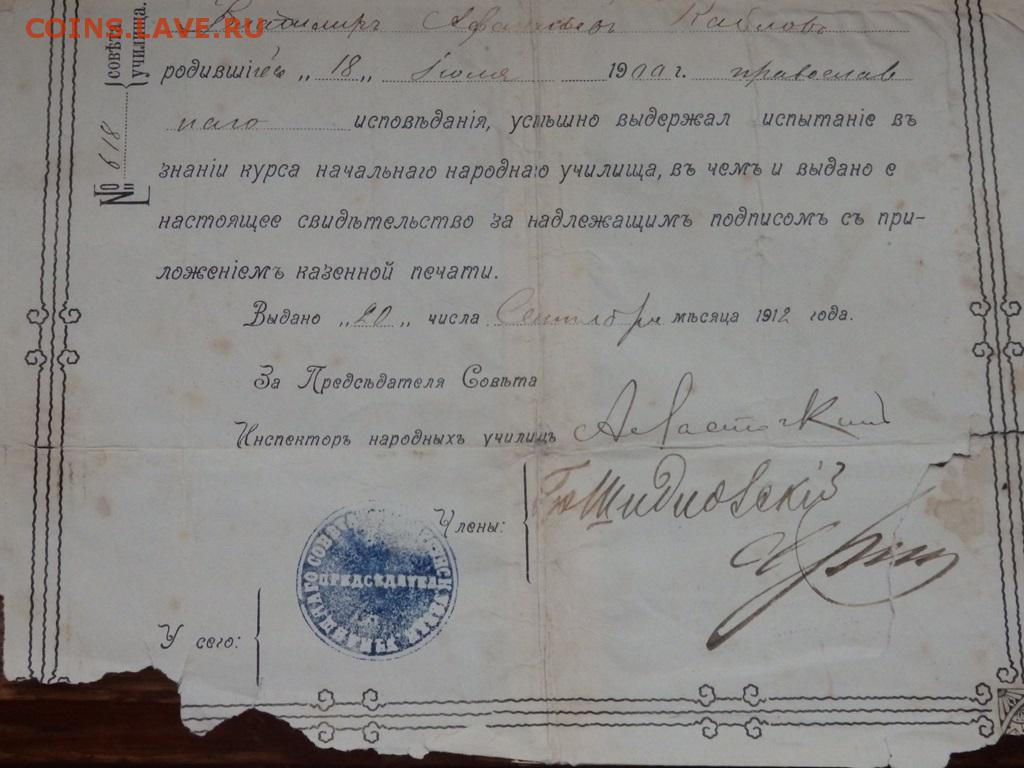 COINS.LAVE.RU
Афанасьев Каблов
родившiйся „ 18 „ Iюля 1900 г. православ
наго исповѣданiя, успѣшно выдержал испытанiе въ
знанiи курса начальнаго народнаго училища, въ чемъ и выдано е
настоящее свидѣтельство за надлежащимъ подписомъ съ при-
ложенiемъ казенной печати.
Выдано „20„ числа Сентября мѣсяца 1912 года.
За Предсѣдателя Совѣта
Инспекторъ народныхъ училищъ
Члены:
ПРЕДСѢДАТЕЛ
У сего:
№ 618
совѣта
училища.